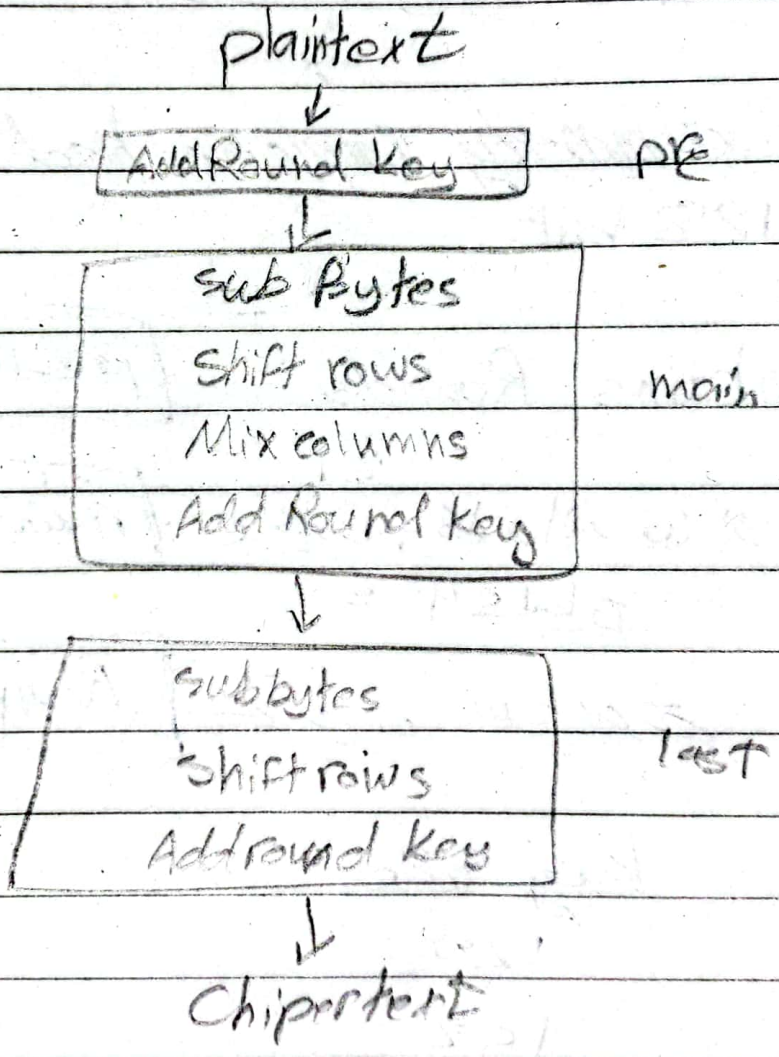 plaintext
Add Round Key pre
Sub Bytes
Shift rows
main
Mix columns
Add Round Key
subbytes
Shift rows
last
Add round Key
Chipertext